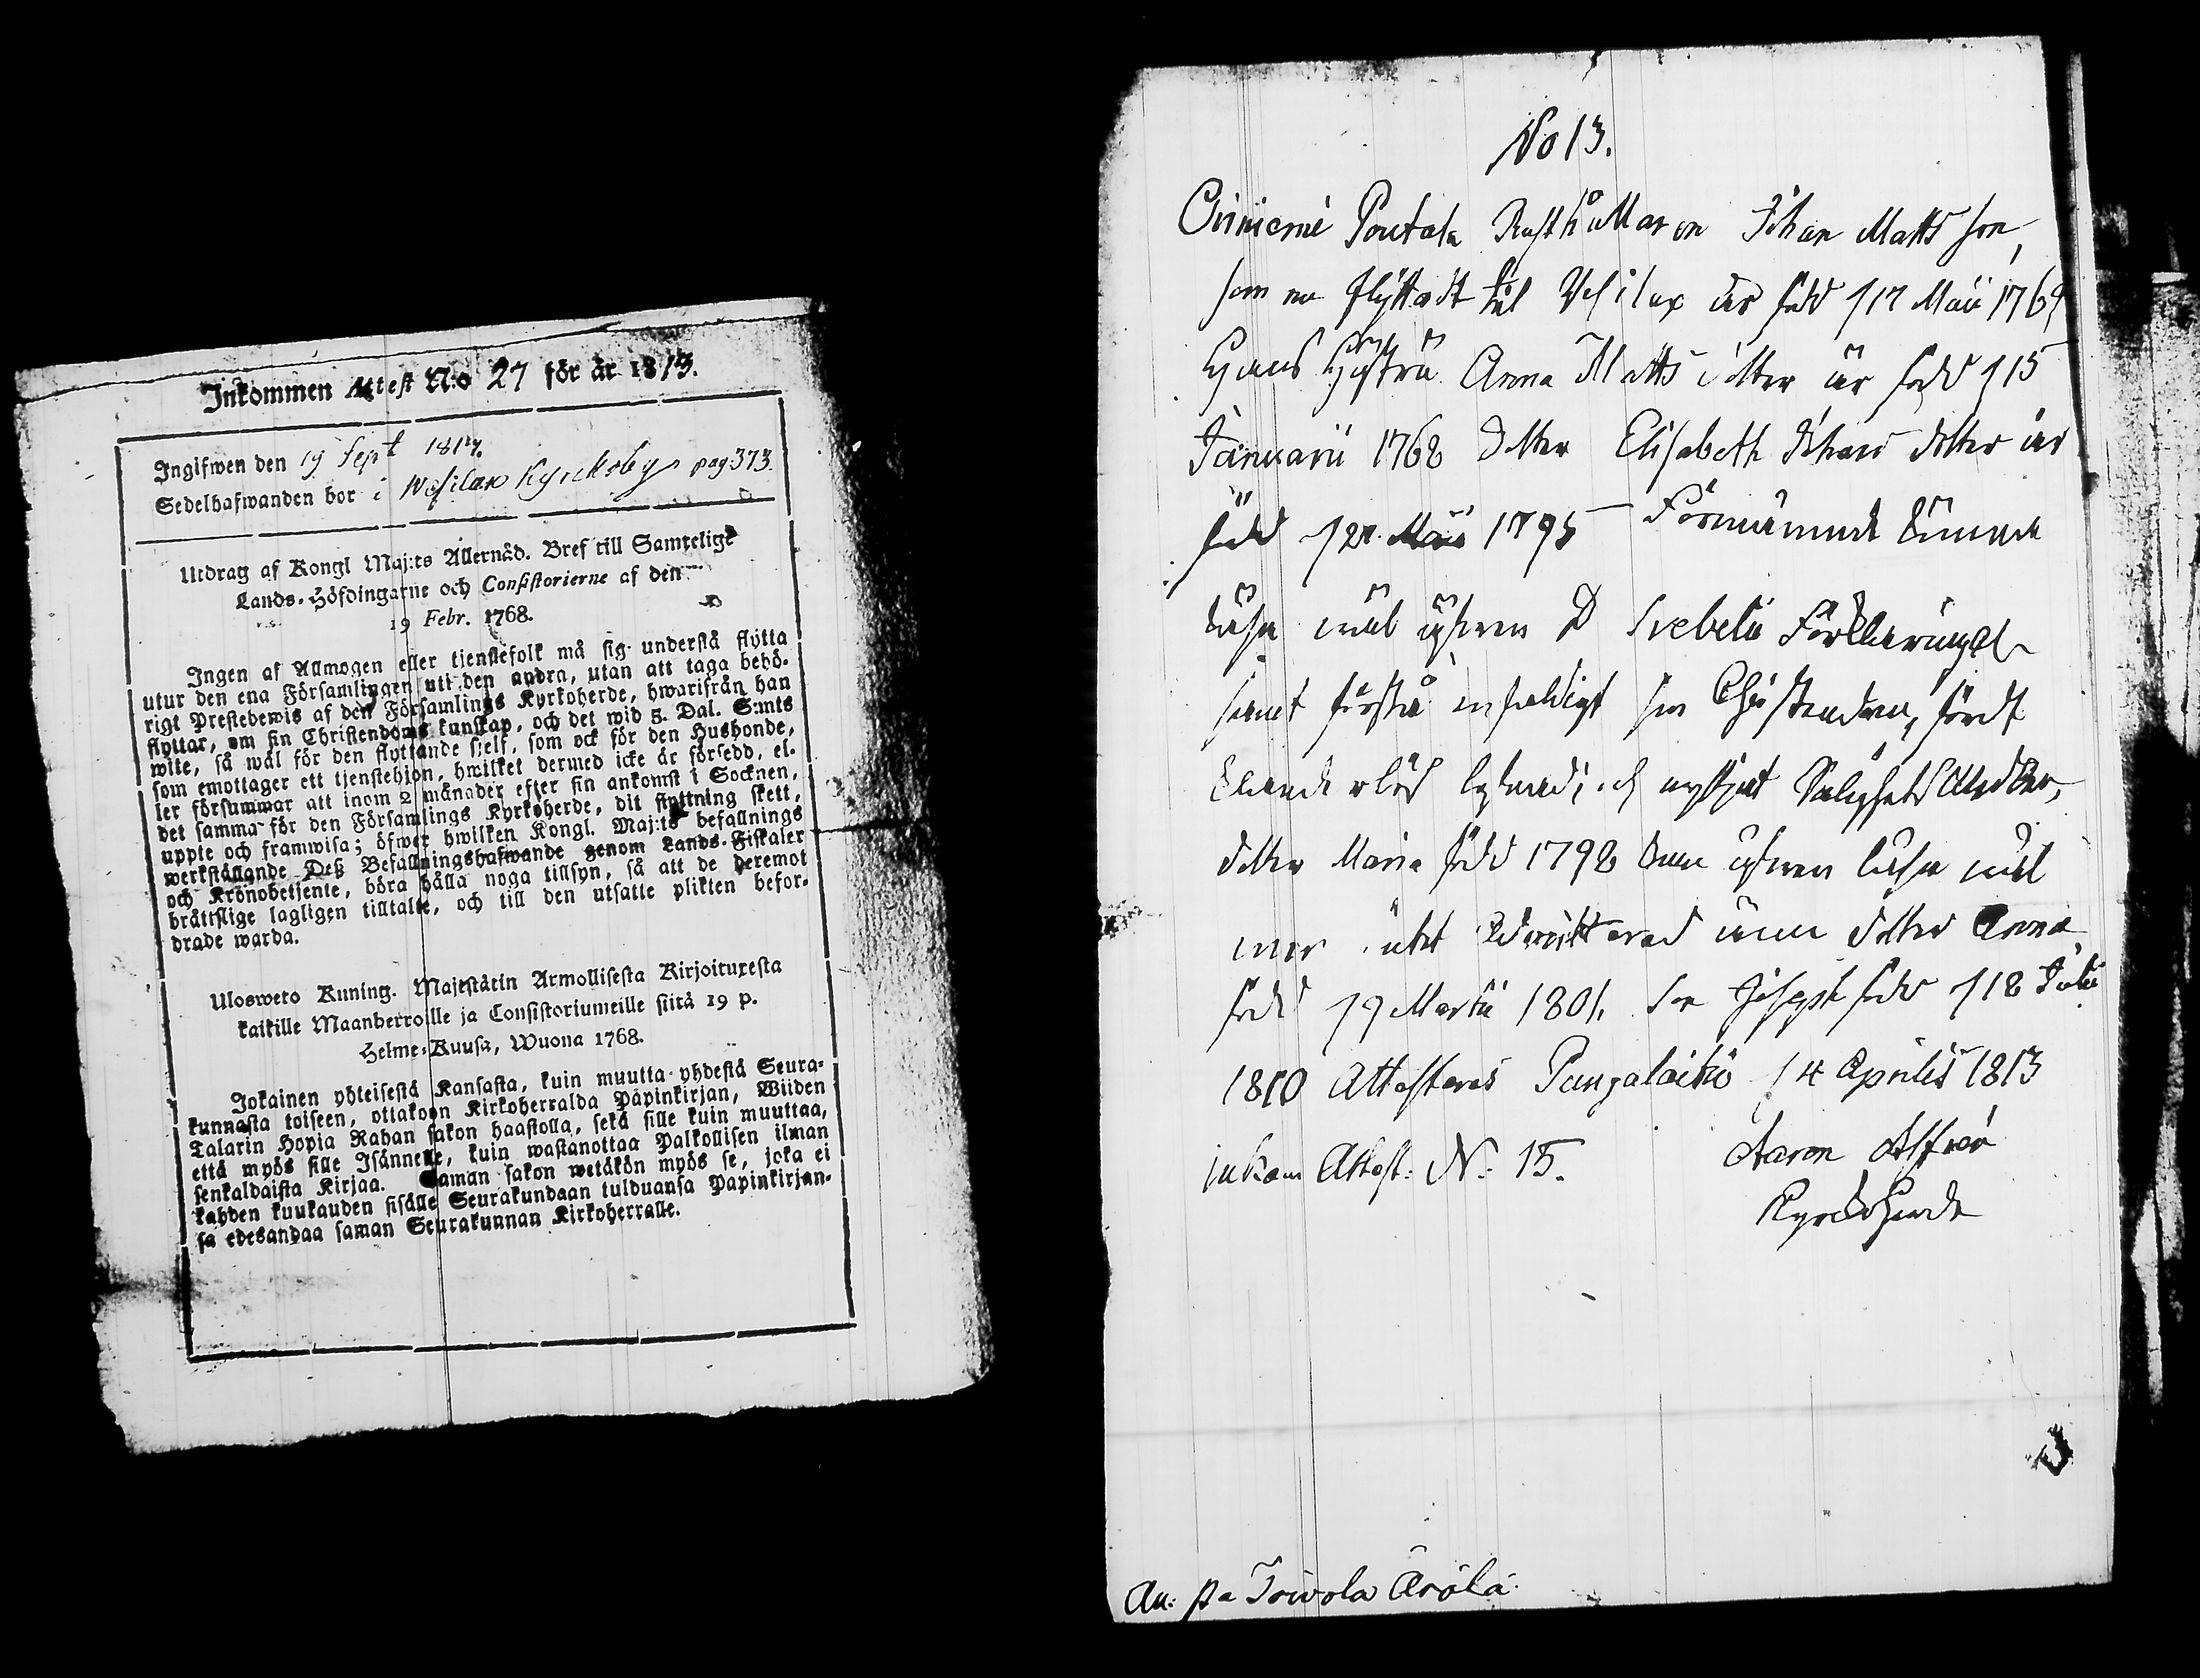 Inkommen Attest N:o 27 för år 1813.
Ingifwen den 19 Sept 1814.
Sedelhafwanden bor i Wesilax Kyrckoby pag 373.
Utdrag af Kongl Maj:ts Allernåd. Bref till Samtelige
Lands-Höfdingarne och Consistorierne af den
19 Febr. 1768.
Ingen af Allmogen eller tjenstefolk må sig understå flytta
utur den ena Församlingen uti den andra, utan att taga behö-
rigt Prestebewis af den Församlings Kyrkoherde, hwarifrån han
flyttar, om sin Christendoms kunskap, och det wid 5. Dal. S:mts
wite, så wäl för den flyttande sjelf, som ock för den Husbonde,
som emottager ett tjenstehjon, hwilket dermed icke är försedd, el-
ler försummar att inom 2 månader efter sin ankomst i Socknen,
det samma för den Församlings Kyrkoherde, dit flyttning skett,
uppte och framwisa; öfwer hwilken Kongl. Maj:ts befallnings
werkställande Deß Befallningshafwande genom Lands-Fiskaler
och Kronobetjente, böra hålla noga tillsyn, så att de deremot
bråttslige lagligen tilltalte, och till den utsatte plikten befor-
drade warda.
Ulosweto Kuning. Majestätin Armollisesta Kirjoituxesta
kaikille Maanherroille ja Consistoriumeille siitä 19 p.
Helme-Kuusa, Wuona 1768.
Jokainen yhteisestä Kansasta, kuin muutta yhdestä Seura-
kunnasta toiseen, ottakoon Kirkoherralda Papinkirjan, Wiiden
Talarin Hopia Rahan sakon haastolla, sekä sille kuin muuttaa,
että myös sille Isännelle, kuin wastanottaa Palkollisen ilman
senkaldaista Kirjaa. Saman sakon wetäkön myös se, joka ei
kahden kuukauden sisälle Seurakundaan tulduansa Papinkirjan-
sa edesandaa saman Seurakunnan Kirkoherralle.
No 13.
Pontala Rusthållaren Johan Mattsson,
som nu flyttadt til Vesilax är född 17 Maii 1769
Hans Hustru Anna Matts dotter är född 15
Januarii 1768 Dotter Elisabeth Johans dotter är
född 12 Maii 1795 Förnämnde kunna
läsa wäl utwen D Svebelii Förklaring
samt förstå enfaldigt sin Christendom, fördt
lefnad, och nyttjat Salighets Medlen,
dotter Maria född 1798 kan utwen läsa wäl
men intet Admitterad ännu dotter Anna
född 19 Martii 1801. Son Joseph född 18 Julii
1810 Attesteras Pungalaitio 14 Aprilis 1813
inkom Attest: N: 15. Aaron
Kyrckoherde
An: på Toivola